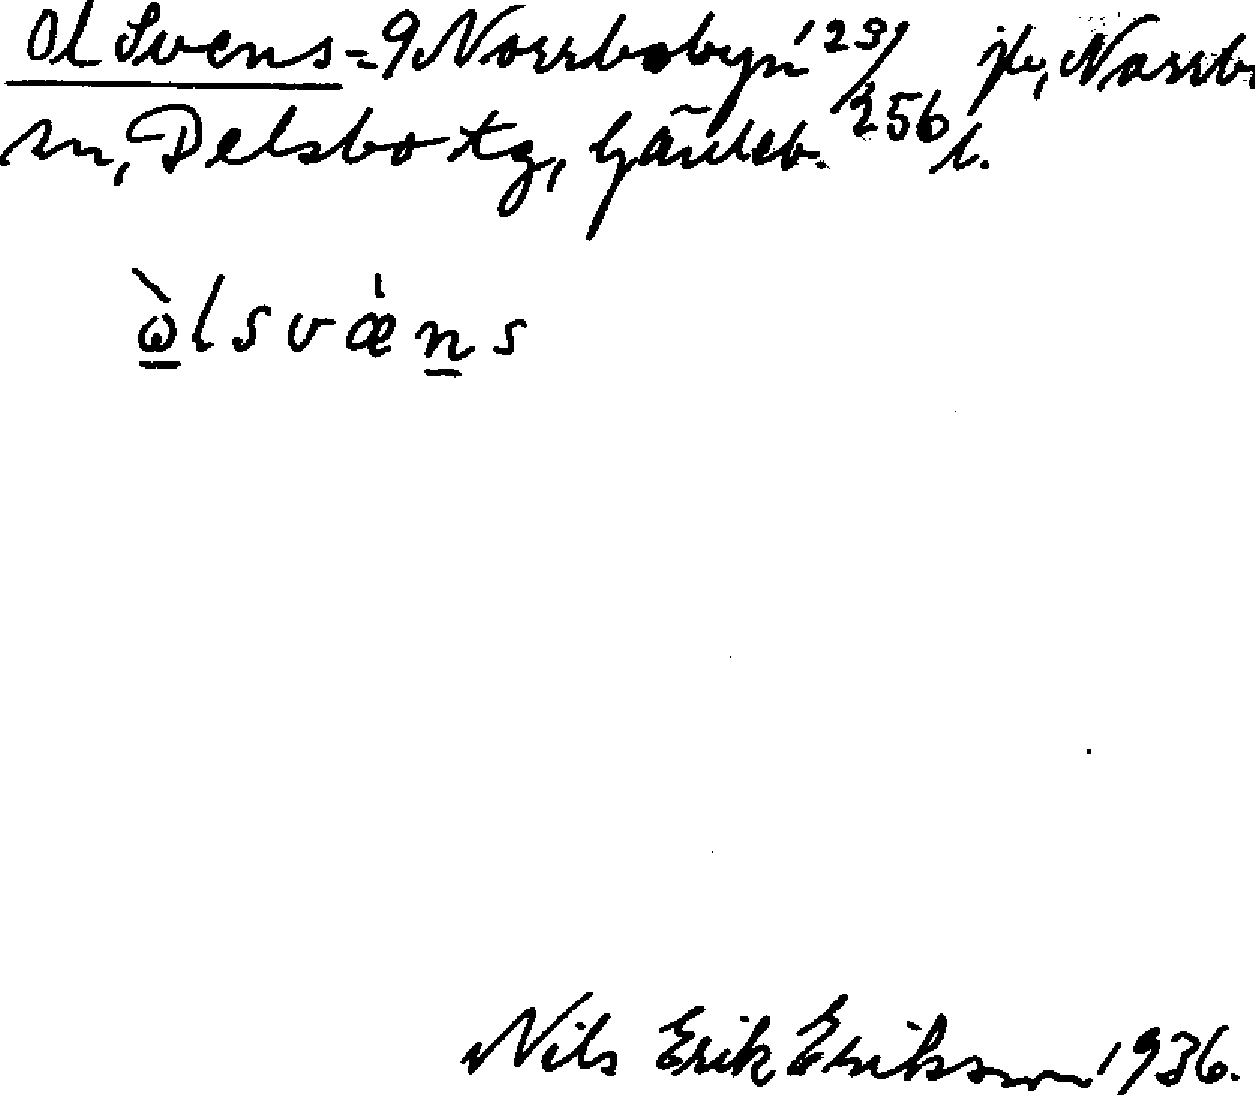 Ol Svens = 9 Norrbobyn 1 23/256 jb, Norrbo
sn, Delsbo tg, Gävleb. l.
òlsvæ̀ns
Nils Erik Eriksson 1936.